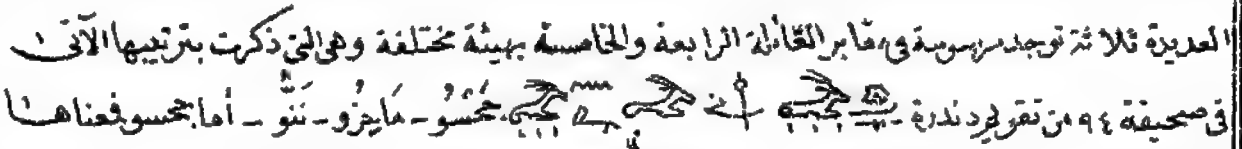 العديدة ثلاثة توجد مرسومة فى مقابر العائلة الرابعة والخامسة بهيئة مختلفة وهى التى ذكرت بترتيبها الآتى
فى صحيفة ٩٤ من تقويم دندرة - تَحَسُو - مَايِزُو - نَنُّو - أما تحسو فمعناها